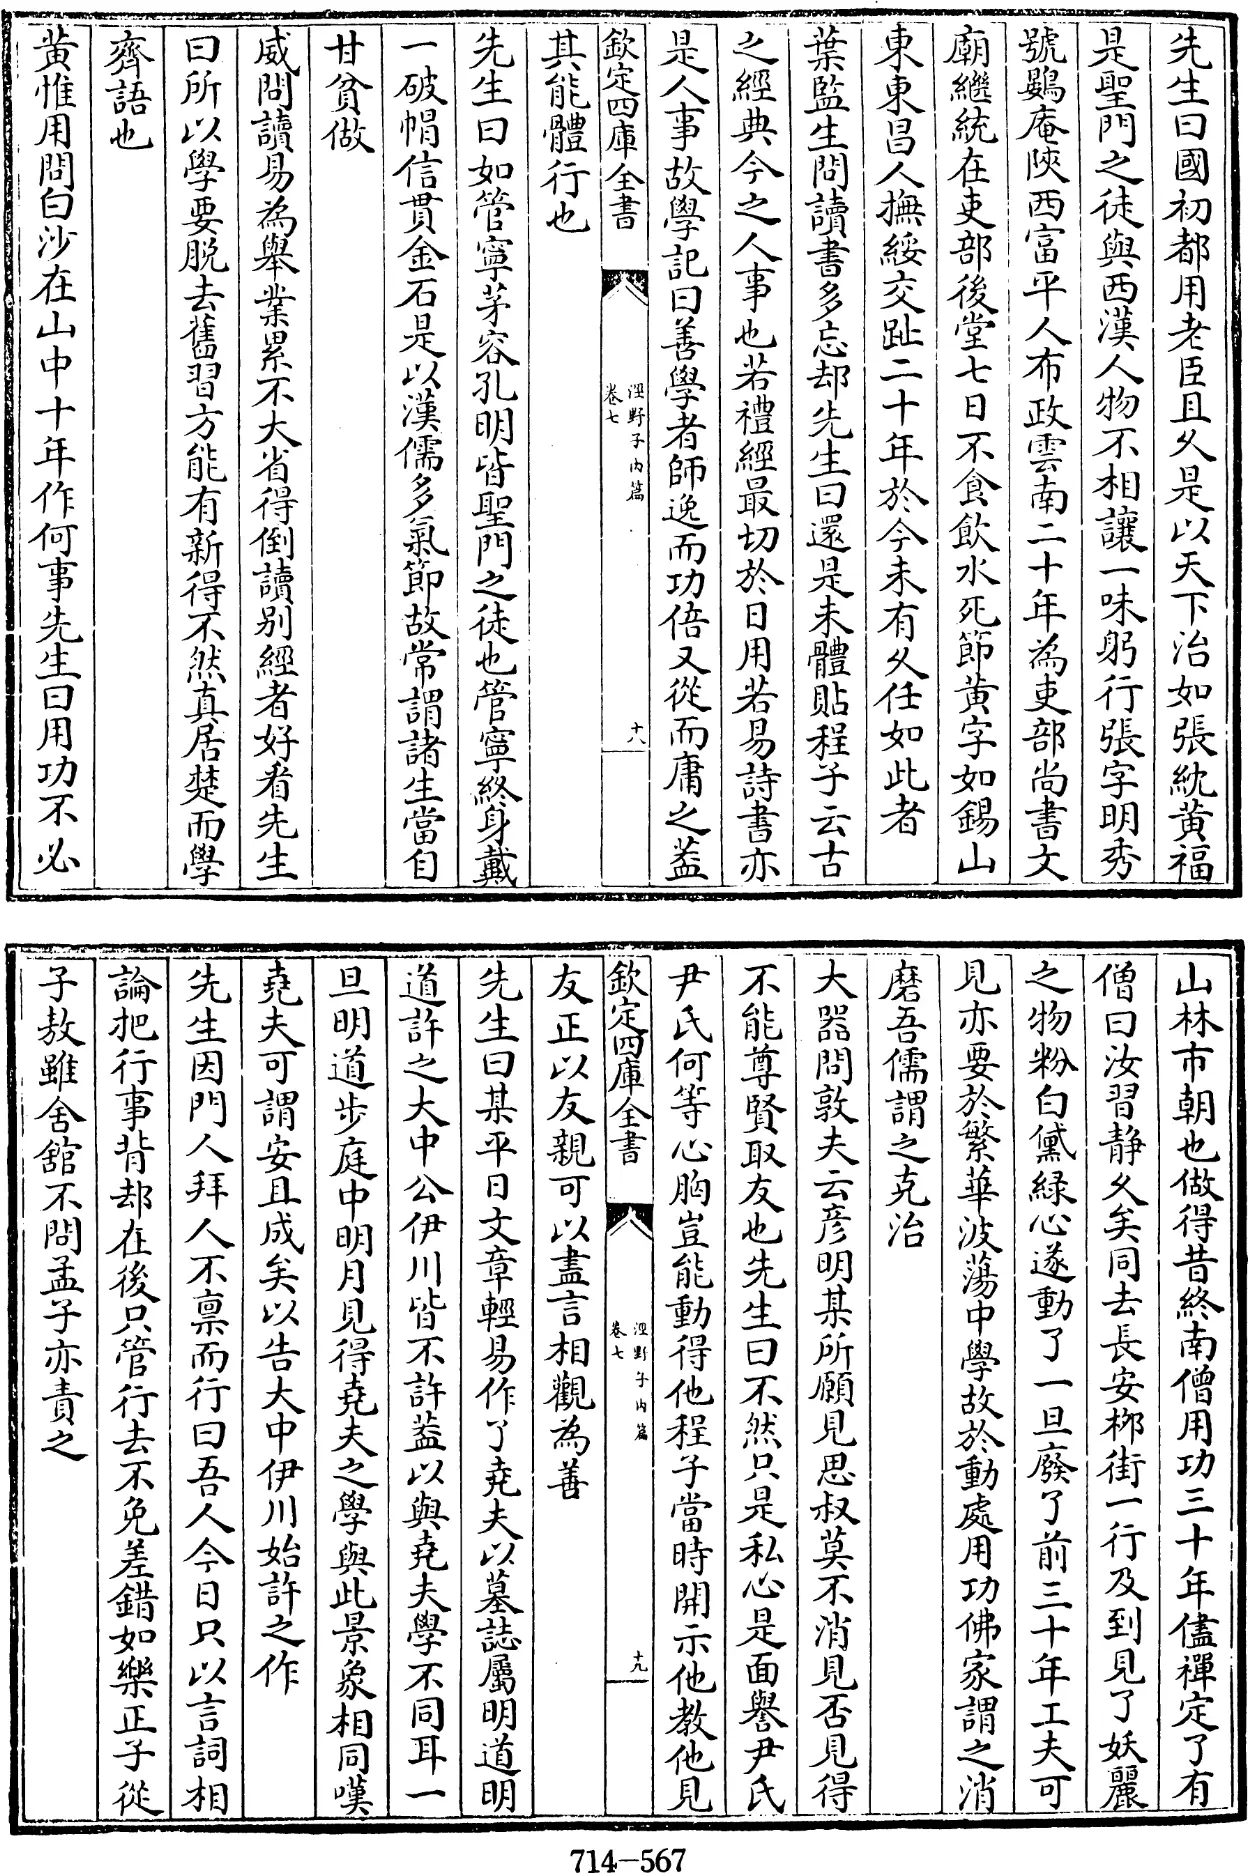 先生曰國初都用老臣且久是以天下治如張紞黄福
是聖門之徒與西漢人物不相讓一味躬行張字明秀
號鷃庵陜西富平人布政雲南二十年為吏部尚書文
廟繼統在吏部後堂七日不食飲水死節黄字如錫山
東東昌人撫綏交趾二十年於今未有久任如此者
葉監生問讀書多忘却先生曰還是未體貼程子云古
之經典今之人事也若禮經最切於日用若易詩書亦
是人事故學記曰善學者師逸而功倍又從而庸之葢
欽定四庫全書
涇野子内篇
卷七
十八
其能體行也
先生曰如管寧茅容孔明皆聖門之徒也管寧終身戴
一破㡌信貫金石是以漢儒多氣節故常謂諸生當自
甘貧做
威問讀易為舉業累不大省得倒讀别經者好看先生
曰所以學要脱去舊習方能有新得不然真居楚而學
齊語也
黄惟用問白沙在山中十年作何事先生曰用功不必
山林市朝也做得昔終南僧用功三十年儘禪定了有
僧曰汝習静久矣同去長安栁街一行及到見了妖麗
之物粉白黛緑心遂動了一旦廢了前三十年工夫可
見亦要於繁華波蕩中學故於動處用功佛家謂之消
磨吾儒謂之克治
大器問敦夫云彦明某所願見思叔莫不消見否見得
不能尊賢取友也先生曰不然只是私心是面譽尹氏
尹氏何等心胸豈能動得他程子當時開示他教他見
欽定四庫全書
涇野子内篇
卷七
十九
友正以友親可以盡言相觀為善
先生曰某平日文章輕易作了堯夫以墓誌屬明道明
道許之大中公伊川皆不許葢以與堯夫學不同耳一
旦明道步庭中明月見得堯夫之學與此景象相同嘆
堯夫可謂安且成矣以告大中伊川始許之作
先生因門人拜人不禀而行曰吾人今日只以言詞相
論把行事背却在後只管行去不免差錯如樂正子從
子敖雖舍館不問孟子亦責之
714-567